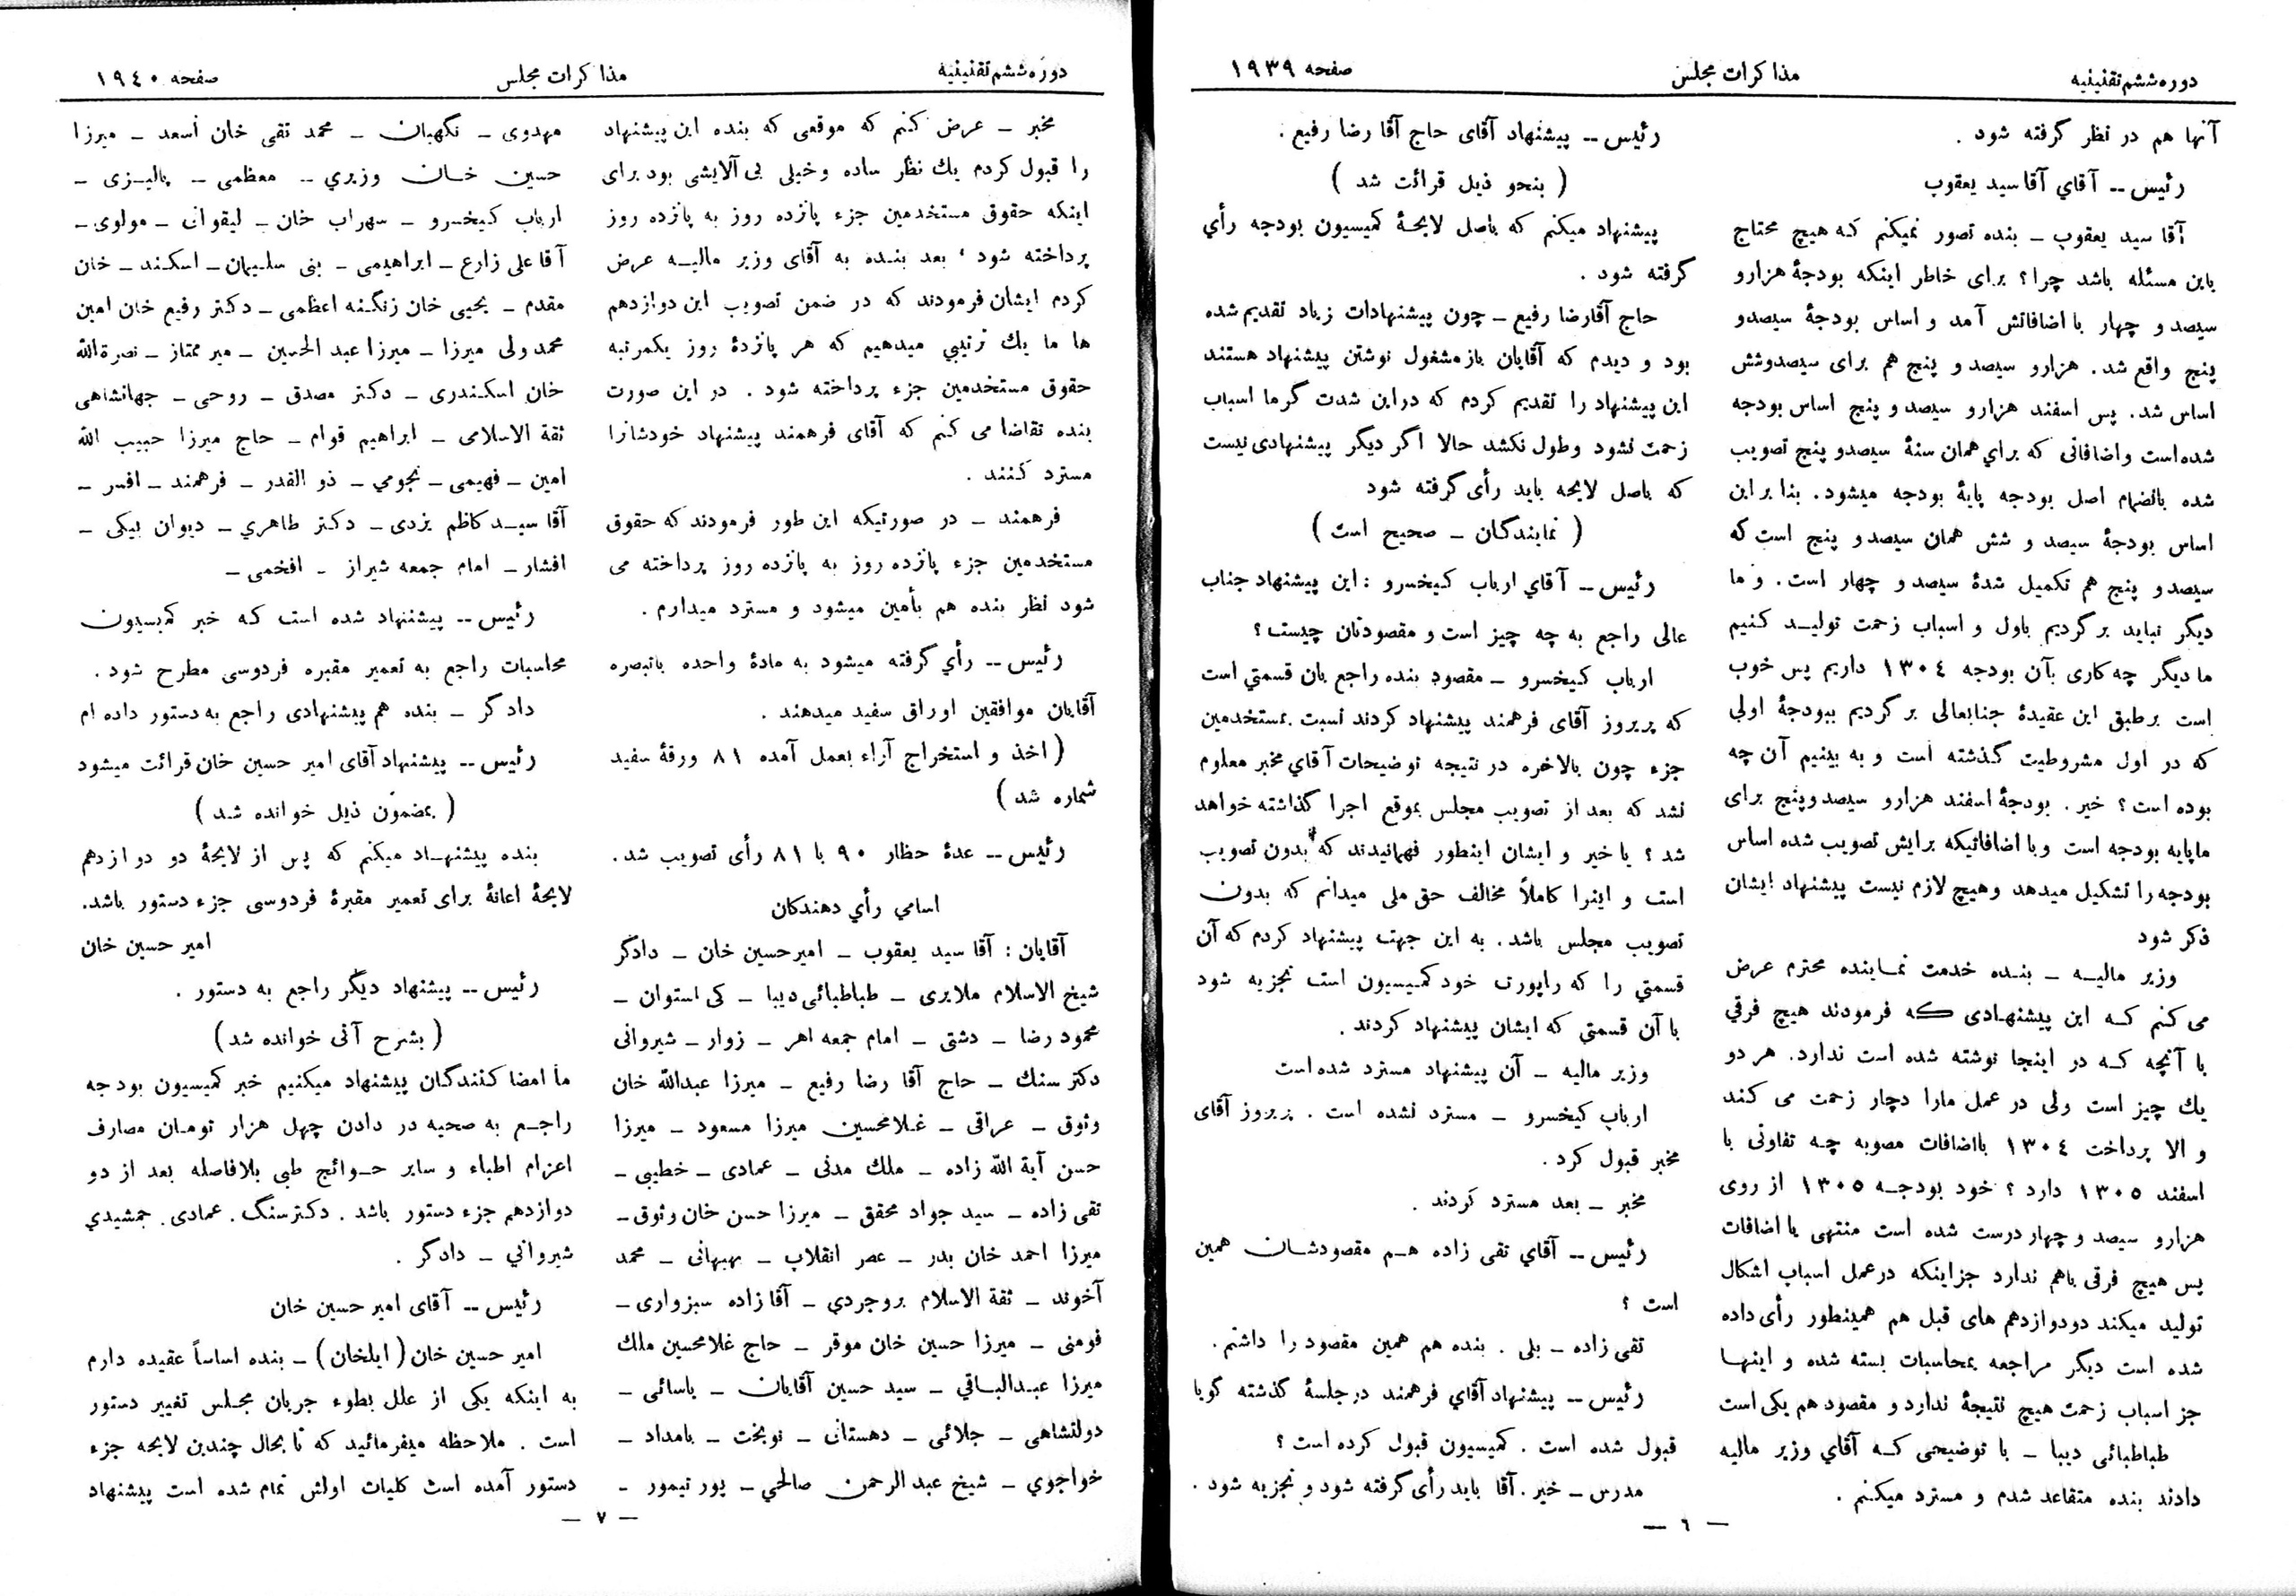 دوره ششم تقنینیه
مذاکرات مجلس
صفحه ۱۹۳۹
آنها هم در نظر گرفته شود .
رئیس -- آقاي آقا سید یعقوب
آقا سید یعقوب - بنده تصور نمیکنم که هیچ محتاج
باین مسئله باشد چرا ؟ برای خاطر اینکه بودجۀ هزارو
سیصد و چهار با اضافاتش آمد و اساس بودجۀ سیصدو
پنج واقع شد . هزارو سیصد و پنج هم برای سیصدوشش
اساس شد . پس اسفند هزارو سیصد و پنج اساس بودجه
شده است واضافاتی که براي همان سنۀ سیصدو پنج تصویب
شده بانضمام اصل بودجه پایۀ بودجه میشود . بنا بر این
اساس بودجۀ سیصد و شش همان سیصد و پنج است که
سیصد و پنج هم تکمیل شدۀ سیصد و چهار است . و ما
دیگر نباید برگردیم باول و اسباب زحمت تولید کنیم
ما دیگر چه کاری بآن بودجه ۱۳۰۴ داریم پس خوب
است بر طبق این عقیدۀ جنابعالی برگردیم ببودجۀ اولی
که در اول مشروطیت گذشته است و به بینیم آن چه
بوده است ؟ خیر . بودجۀ اسفند هزارو سیصد وپنج برای
ما پایه بودجه است وبا اضافاتیکه برایش تصویب شده اساس
بودجه را تشکیل میدهد وهیچ لازم نیست پیشنهاد ایشان
ذکر شود
وزیر مالیه - بنده خدمت نماینده محترم عرض
می کنم که این پیشنهادی که فرمودند هیچ فرقي
با آنچه که در اینجا نوشته شده است ندارد . هر دو
یك چیز است ولی در عمل مارا دچار زحمت می کند
و الا پرداخت ۱۳۰۴ بااضافات مصوبه چه تفاوتی با
اسفند ۱۳۰۵ دارد ؟ خود بودجه ۱۳۰۵ از روی
هزارو سیصد و چهار درست شده است منتهی با اضافات
پس هیچ فرقی باهم ندارد جز اینکه در عمل اسباب اشکال
تولید میکند دو دوازدهم های قبل هم همینطور رأی داده
شده است دیگر مراجعه بمحاسبات بسته شده و اینها
جز اسباب زحمت هیچ نتیجۀ ندارد و مقصود هم یکی است
طباطبائی دیبا - با توضیحی که آقاي وزیر مالیه
دادند بنده متقاعد شدم و مسترد میکنم .
رئیس -- پیشنهاد آقای حاج آقا رضا رفیع .
( بنحو ذیل قرائت شد )
پیشنهاد میکنم که باصل لایحۀ کمیسیون بودجه رأي
گرفته شود .
حاج آقا رضا رفیع - چون پیشنهادات زیاد تقدیم شده
بود و دیدم که آقایان باز مشغول نوشتن پیشنهاد هستند
این پیشنهاد را تقدیم کردم که در این شدت گرما اسباب
زحمت نشود وطول نکشد حالا اگر دیگر پیشنهادی نیست
که باصل لایحه باید رأی گرفته شود
( نمایندگان - صحیح است )
رئیس -- آقاي ارباب کیخسرو : این پیشنهاد جناب
عالی راجع به چه چیز است و مقصودتان چیست ؟
ارباب کیخسرو - مقصود بنده راجع بان قسمتي است
که پریروز آقای فرهمند پیشنهاد کردند نسبت بمستخدمین
جزء چون بالاخره در نتیجه توضیحات آقاي مخبر معلوم
نشد که بعد از تصویب مجلس بموقع اجرا گذاشته خواهد
شد ؟ یا خیر و ایشان اینطور فهمانیدند که بدون تصویب
است و اینرا کاملاً مخالف حق ملی میدانم که بدون
تصویب مجلس باشد . به این جهت پیشنهاد کردم که آن
قسمتي را که راپورت خود کمیسیون است تجزیه شود
با آن قسمتي که ایشان پیشنهاد کردند .
وزیر مالیه - آن پیشنهاد مسترد شده است
ارباب کیخسرو - مسترد نشده است . پریروز آقای
مخبر قبول کرد .
مخبر - بعد مسترد کردند .
رئیس -- آقاي تقی زاده هم مقصودشان همین
است ؟
تقی زاده - بلی . بنده هم همین مقصود را داشتم .
رئیس -- پیشنهاد آقاي فرهمند در جلسۀ گذشته گویا
قبول شده است . کمیسیون قبول کرده است ؟
مدرس - خیر . آقا باید رأی گرفته شود و تجزیه شود .
- ٦ -
دوره ششم تقنینیه
مذاکرات مجلس
صفحه ۱۹۴۰
مخبر - عرض کنم که موقعی که بنده این پیشنهاد
را قبول کردم یك نظر ساده و خیلی بی آلایشی بود برای
اینکه حقوق مستخدمین جزء پانزده روز به پانزده روز
پرداخته شود ، بعد بنده به آقای وزیر مالیه عرض
کردم ایشان فرمودند که در ضمن تصویب این دوازدهم
ها ما یك ترتیبي میدهیم که هر پانزدۀ روز یکمرتبه
حقوق مستخدمین جزء پرداخته شود . در این صورت
بنده تقاضا می کنم که آقای فرهمند پیشنهاد خودشانرا
مسترد کنند .
فرهمند - در صورتیکه این طور فرمودند که حقوق
مستخدمین جزء پانزده روز به پانزده روز پرداخته می
شود نظر بنده هم بأمین میشود و مسترد میدارم .
رئیس -- رأي گرفته میشود به مادۀ واحده باتبصره
آقایان موافقین اوراق سفید میدهند .
( اخذ و استخراج آراء بعمل آمده ۸۱ ورقۀ سفید
شماره شد )
رئیس -- عدۀ حظار ۹۰ با ۸۱ رأی تصویب شد .
اسامي رأي دهندکان
آقایان : آقا سید یعقوب - امیر حسین خان - دادگر
شیخ الاسلام ملایری - طباطبائی دیبا - کی استوان -
محمود رضا - دشتی - امام جمعه اهر - زوار - شیروانی
دکتر سنك - حاج آقا رضا رفیع - میرزا عبدالله خان
وثوق - عراقی - غلامحسین میرزا مسعود - میرزا
حسن آیة الله زاده - ملك مدنی - عمادی - خطیبی -
تقی زاده - سید جواد محقق - میرزا حسن خان وثوق -
میرزا احمد خان بدر - عصر انقلاب - بهبهانی - محمد
آخوند - ثقة الاسلام بروجردي - آقا زاده سبزواری -
فومنی - میرزا حسین خان موقر - حاج غلامحسین ملك
میرزا عبدالباقي - سید حسین آقایان - یاسائی -
دولتشاهی - جلائی - دهستانی - نوبخت - بامداد -
خواجوي - شیخ عبد الرحمن صالحي - پور تیمور -
مهدوی - نگهبان - محمد تقی خان اسعد - میرزا
حسین خان وزیري -- معظمی - پالیزی -
ارباب کیخسرو - سهراب خان - لیقوانی - مولوی -
آقا علی زارع - ابراهیمی - بنی سلیمان - اسکند - خان
مقدم - یحیی خان زنگنه اعظمی - دکتر رفیع خان امین
محمد ولی میرزا - میرزا عبد الحسین - میر ممتاز - نصرة الله
خان اسکندری - دکتر مصدق - روحی - جهانشاهی
ثقة الاسلامی - ابراهیم قوام - حاج میرزا حبیب الله
امین - فهیمی - نجومي - ذو القدر - فرهمند - افسر -
آقا سید کاظم یزدی - دکتر طاهري - دیوان بیکی -
افشار - امام جمعه شیراز - افخمی -
رئیس -- پیشنهاد شده است که خبر کمیسیون
محاسبات راجع به تعمیر مقبره فردوسی مطرح شود .
دادگر - بنده هم پیشنهادی راجع به دستور داده ام
رئیس -- پیشنهاد آقای امیر حسین خان قرائت میشود
( بمضمون ذیل خوانده شد )
بنده پیشنهاد میکنم که پس از لایحۀ دو دوازدهم
لایحۀ اعانۀ برای تعمیر مقبرۀ فردوسی جزء دستور باشد .
امیر حسین خان
رئیس -- پیشنهاد دیگر راجع به دستور .
( بشرح آتی خوانده شد )
ما امضا کنندگان پیشنهاد میکنیم خبر کمیسیون بودجه
راجع به صحیه در دادن چهل هزار تومان مصارف
اعزام اطباء و سایر حوائج طبی بلافاصله بعد از دو
دوازدهم جزء دستور باشد . دکتر سنگ . عمادی . جمشیدي
شیرواني - دادگر .
رئیس -- آقای امیر حسین خان
امیر حسین خان ( ایلخان ) - بنده اساساً عقیده دارم
به اینکه یکی از علل بطوء جریان مجلس تغییر دستور
است . ملاحظه میفرمائید که تا بحال چندین لایحه جزء
دستور آمده است کلیات اولش تمام شده است پیشنهاد
- ۷ -